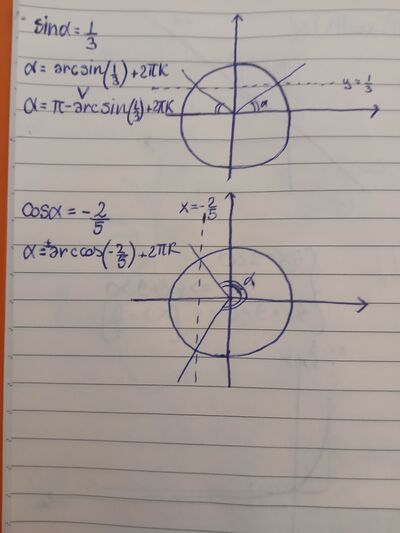 sinα = 1/3
α = arcsin(1/3) + 2πk
∨
α = π - arcsin(1/3) + 2πk
α
y = 1/3
cosα = -2/5
x = -2/5
α = ± arccos(-2/5) + 2πk
α